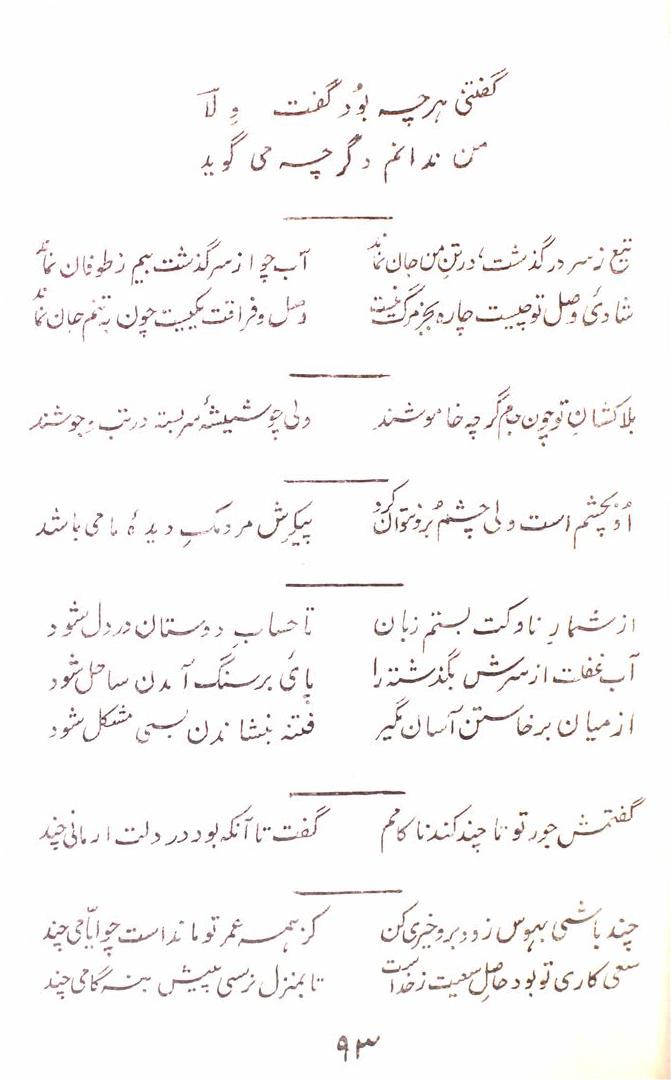 گفتنی هرچه بود گفت ولا
من ندانم دگر چه می گوید
تیغ ز سر در گذشت، در تن من جان نماند آب چو از سر گذشت بیم ز طوفان نماند
شادئ وصل تو چیست چاره بجز مرگ نیست وصل و فراقت یکیست چون به تنم جان نماند
بلاکشان تو چون جم گر چه خاموشند ولی چو شیشهٔ سربسته در تب و جوشند
او بچشم است ولی چشم برو نتوان کرد پیکرش مردمک دیدهٔ ما می باشد
از شمار ناوکت بستم زبان تا حساب دوستان در دل شود
آب غفلت از سرش بگذشته را پائ بر سنگ آمدن ساحل شود
از میان برخاستن آسان مگیر فتنه بنشاندن بسی مشکل شود
گفتمش جور تو تا چند کند ناکامم گفت تا آنکه بود در دلت ارمانی چند
چند باشی بهوس زود برو خیری کن کز همه عمر تو مانداست چو ایامی چند
سعی کاری تو بود حاصل سعیت ز خداست تا بمنزل نرسی پیش بنه گامی چند
۹۳